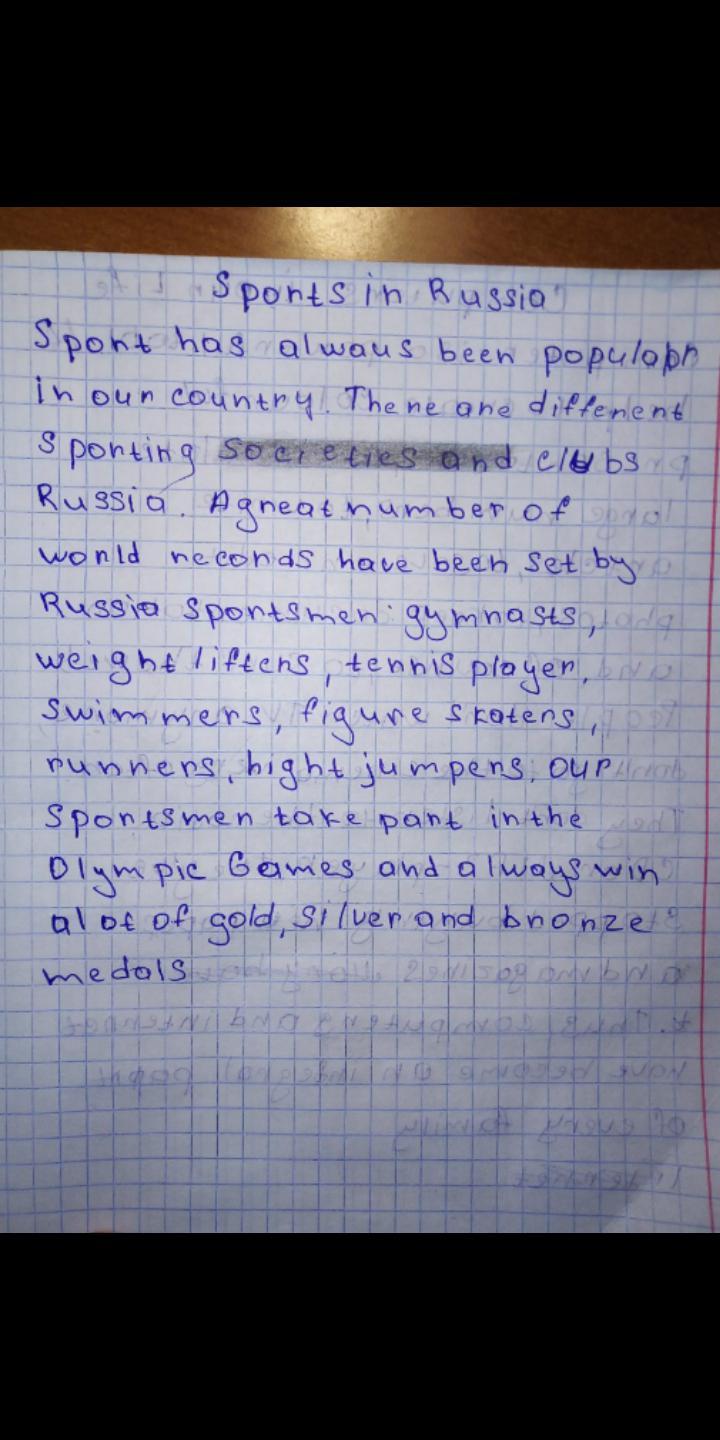 Sports in Russia
Sport has always been popular
in our country. There are different
sporting societies and clubs
Russia. A great number of
world records have been set by
Russia sportsmen: gymnasts,
weight lifters, tennis player,
swimmers, figure skaters,
runners, hight jumpers. Our
sportsmen take part in the
Olympic Games and always win
a lot of gold, silver and bronze
medals